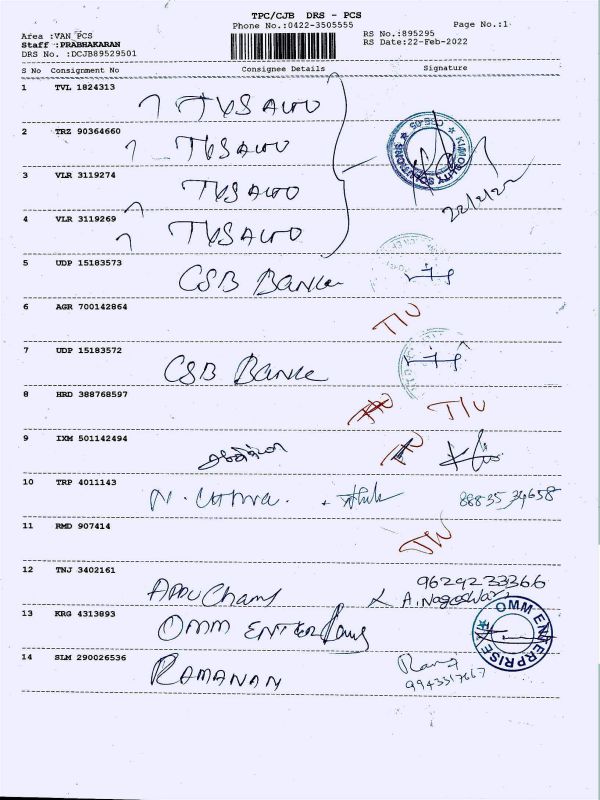 TPC/CJB DRS - PCS
Phone No.:0422-3505555
Page No.:1
Area :VAN_PCS
Staff :PRABHAKARAN
DRS No. :DCJB89529501
RS No.:895295
RS Date:22-Feb-2022
S No Consignment No Consignee Details Signature
1 TVL 1824313 TVS AUTO
2 TRZ 90364660 TVS AUTO
3 VLR 3119274 TVS AUTO
22/2/22
4 VLR 3119269 TVS AUTO
5 UDP 15183573 CSB Bank
6 AGR 700142864 T/U
7 UDP 15183572 CSB Bank
8 HRD 388768597 T/U
9 IXM 501142494
10 TRP 4011143 88835 34658
11 RMD 907414
12 TNJ 3402161 9629233366
A. Nageswari
13 KRG 4313893 OMM ENTER
OMM ENTERPRISE
14 SLM 290026536 RAMANAN Ravi
9943517667